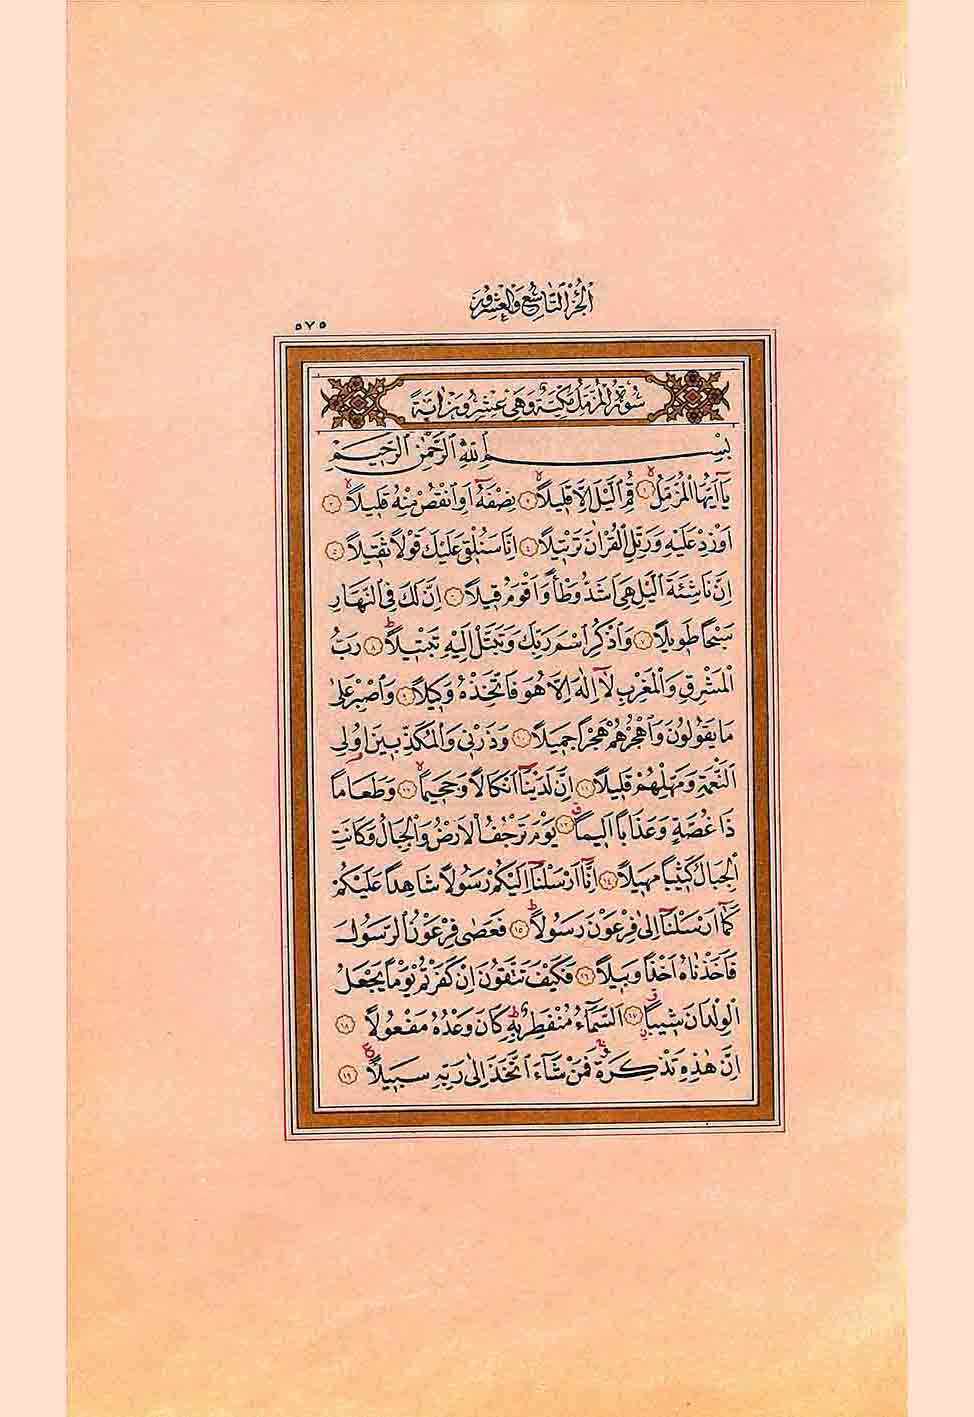 الجزء التاسع والعشرون
٥٧٥
سورة المزمل مكية وهي عشرون آية
بِسْمِ اللهِ الرَّحْمٰنِ الرَّحِيمِ
يَٓا اَيُّهَا الْمُزَّمِّلُۙ ١ قُمِ الَّيْلَ اِلَّا قَلٖيلًاۙ ٢ نِصْفَهُٓ اَوِ انْقُصْ مِنْهُ قَلٖيلًاۙ ٣
اَوْ زِدْ عَلَيْهِ وَرَتِّلِ الْقُرْاٰنَ تَرْتٖيلًا ٤ اِنَّا سَنُلْقٖي عَلَيْكَ قَوْلًا ثَقٖيلًا ٥
اِنَّ نَاشِئَةَ الَّيْلِ هِيَ اَشَدُّ وَطْأً وَاَقْوَمُ قٖيلًا ٦ اِنَّ لَكَ فِي النَّهَارِ
سَبْحًا طَوٖيلًا ٧ وَاذْكُرِ اسْمَ رَبِّكَ وَتَبَتَّلْ اِلَيْهِ تَبْتٖيلًاؕ ٨ رَبُّ
الْمَشْرِقِ وَالْمَغْرِبِ لَٓا اِلٰهَ اِلَّا هُوَ فَاتَّخِذْهُ وَكٖيلًا ٩ وَاصْبِرْ عَلٰى
مَا يَقُولُونَ وَاهْجُرْهُمْ هَجْرًا جَمٖيلًا ١٠ وَذَرْنٖي وَالْمُكَذِّبٖينَ اُولِي
النَّعْمَةِ وَمَهِّلْهُمْ قَلٖيلًا ١١ اِنَّ لَدَيْنَٓا اَنْكَالًا وَجَحٖيمًاۙ ١٢ وَطَعَامًا
ذَا غُصَّةٍ وَعَذَابًا اَلٖيمًاۗ ١٣ يَوْمَ تَرْجُفُ الْاَرْضُ وَالْجِبَالُ وَكَانَتِ
الْجِبَالُ كَثٖيبًا مَهٖيلًا ١٤ اِنَّٓا اَرْسَلْنَٓا اِلَيْكُمْ رَسُولًا شَاهِدًا عَلَيْكُمْ
كَمَٓا اَرْسَلْنَٓا اِلٰى فِرْعَوْنَ رَسُولًاؕ ١٥ فَعَصٰى فِرْعَوْنُ الرَّسُولَ
فَاَخَذْنَاهُ اَخْذًا وَبٖيلًا ١٦ فَكَيْفَ تَتَّقُونَ اِنْ كَفَرْتُمْ يَوْمًا يَجْعَلُ
الْوِلْدَانَ شٖيبًاۗ ١٧ اَلسَّمَٓاءُ مُنْفَطِرٌ بِهٖؕ كَانَ وَعْدُهُ مَفْعُولًا ١٨
اِنَّ هٰذِهٖ تَذْكِرَةٌۚ فَمَنْ شَٓاءَ اتَّخَذَ اِلٰى رَبِّهٖ سَبٖيلًا ع ١٩